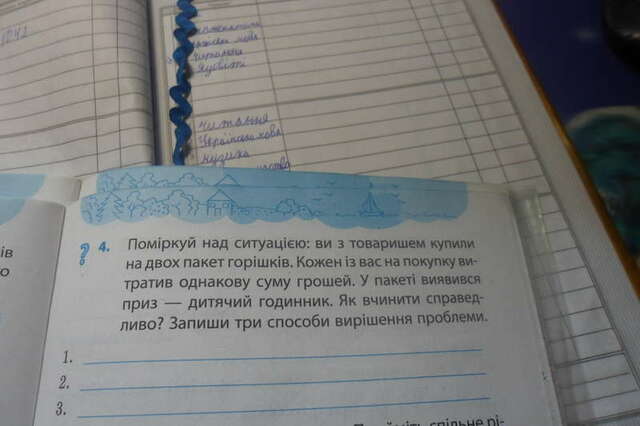 Читання
Українська мова
музика
4. Поміркуй над ситуацією: ви з товаришем купили
на двох пакет горішків. Кожен із вас на покупку ви-
тратив однакову суму грошей. У пакеті виявився
приз — дитячий годинник. Як вчинити справед-
ливо? Запиши три способи вирішення проблеми.
1.
2.
3.
ів
о
спільне рі-